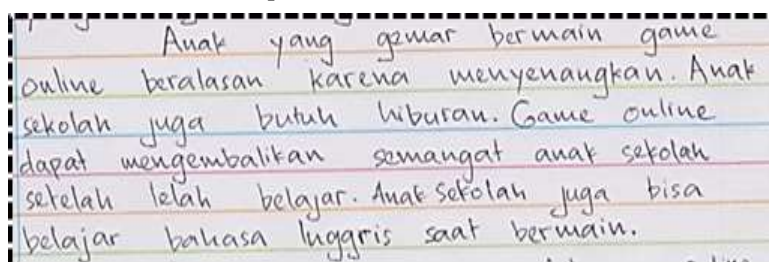 Anak yang gemar bermain game
online beralasan karena menyenangkan. Anak
sekolah juga butuh hiburan. Game online
dapat mengembalikan semangat anak sekolah
setelah lelah belajar. Anak sekolah juga bisa
belajar bahasa Inggris saat bermain.